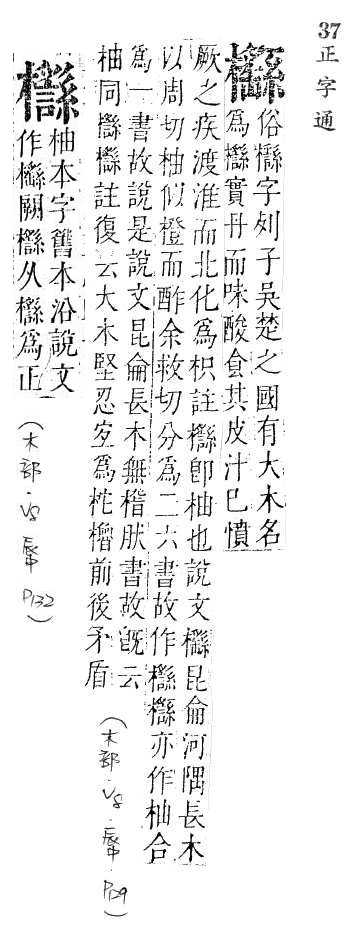 37正字通
櫾
俗櫾字列子吳楚之國有大木名
爲櫾實丹而味酸食其皮汁已憤
厥之疾渡淮而北化爲枳註櫾卽柚也說文櫾昆侖河隅長木
以周切柚似橙而酢余救切分爲二六書故作櫾櫾亦作柚合
爲一書故說是說文昆侖長木無稽肰書故旣云
柚同櫾櫾註復云大木堅忍宐爲柁櫓前後矛盾
(木部·V8· P129)
櫾
柚本字舊本沿說文
作櫾闕櫾久櫾爲正
(木部·V8· P132)